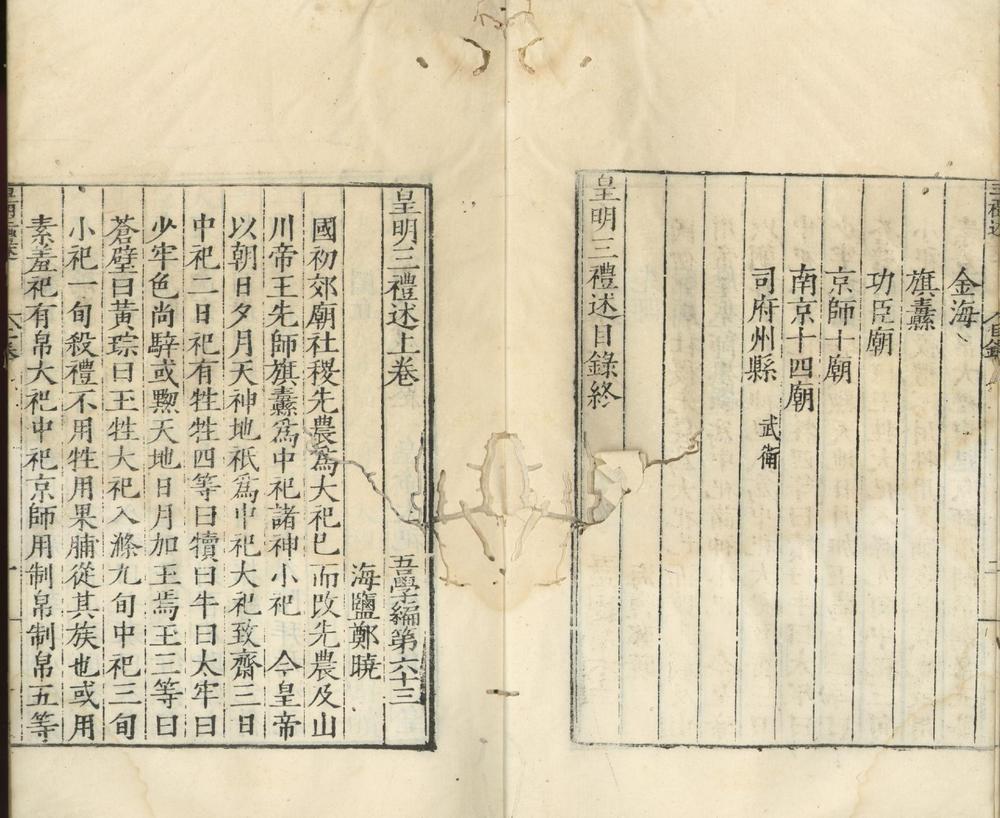 金海
旗纛
功臣廟
京師十廟
南京十四廟
司府州縣 武衛
皇明三禮述目錄終
皇明三禮述上卷 吾學編第六十三
海鹽鄭曉
國初郊廟社稷先農為大祀已而改先農及山
川帝王先師旗纛為中祀諸神小祀 今皇帝
以朝日夕月天神地祇為中祀大祀致齋三日
中祀二日祀有牲牲四等曰犢曰牛曰太牢曰
少牢色尚騂或黝天地日月加玉焉玉三等曰
蒼璧曰黃琮曰玉牲大祀入滌九旬中祀三旬
小祀一旬殺禮不用牲用果脯從其族也或用
素羞祀有帛大祀中祀京師用制帛制帛五等